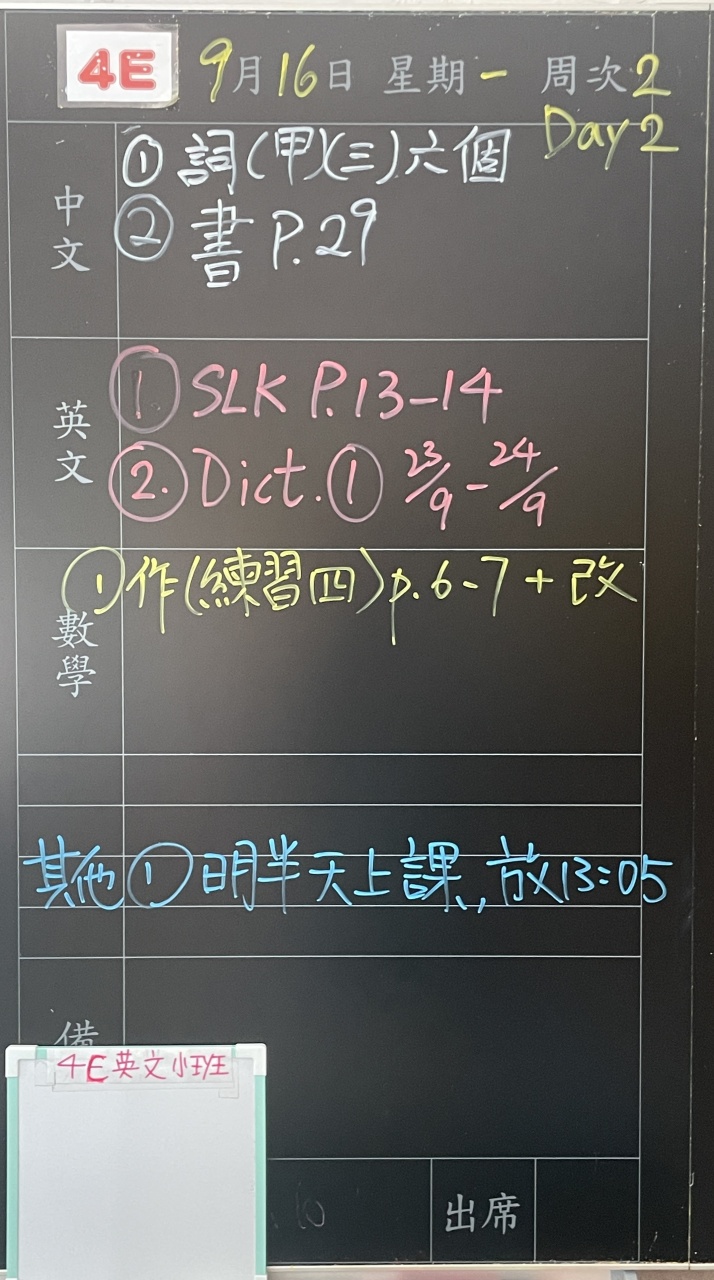 4E 9月16日 星期一 周次2
Day 2
中文
① 詞(甲)(三)六個
② 書 P.29
英文
① SLK P.13-14
②. Dict.① 23/9-24/9
數學
① 作(練習四)p.6-7+改
其他 ① 明半天上課, 放13:05
備
4E英文小班
出席